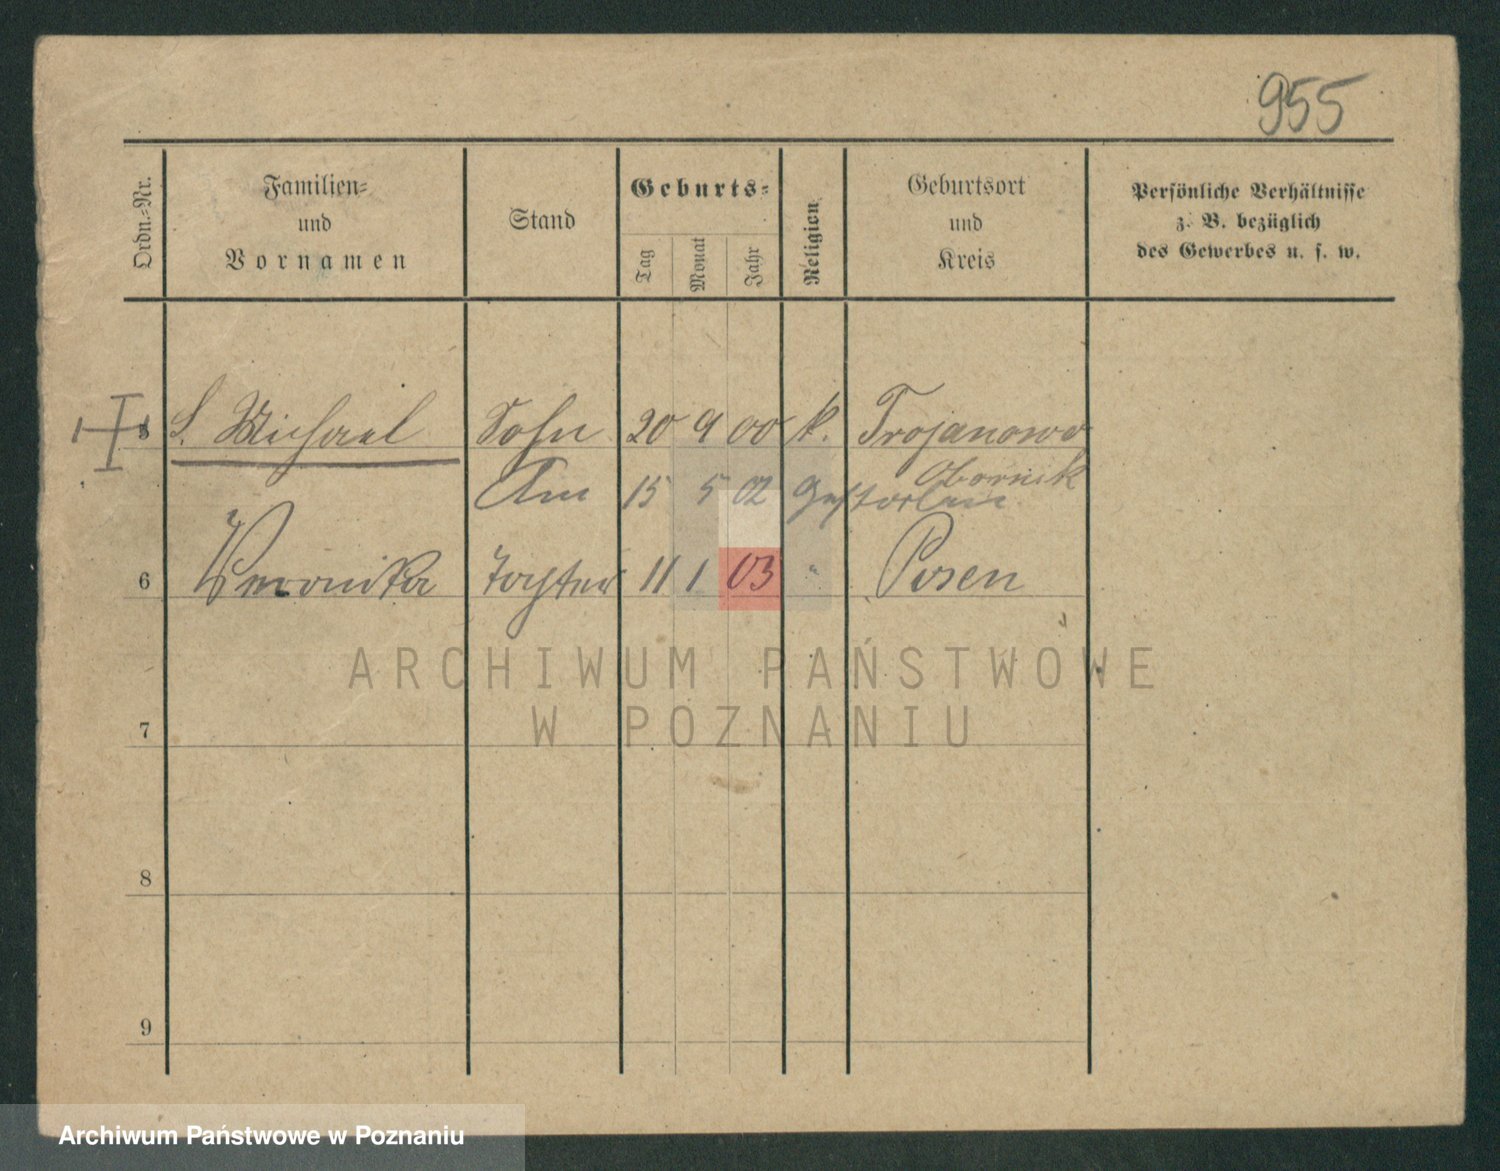 955
Ordn.-Nr.
Familien-
und
Vornamen
Stand
Geburts-
Tag
Monat
Jahr
Religion
Geburtsort
und
Kreis
Persönliche Verhältnisse
z. B. bezüglich
des Gewerbes u. s. w.
5 S. Michael Sohn 20 9 00 k. Trojanowo
Obornik
Am 15 5 02 gestorben
6 Veronika Tochter 11 1 03 " Posen
ARCHIWUM PAŃSTWOWE
W POZNANIU
7
8
9
Archiwum Państwowe w Poznaniu